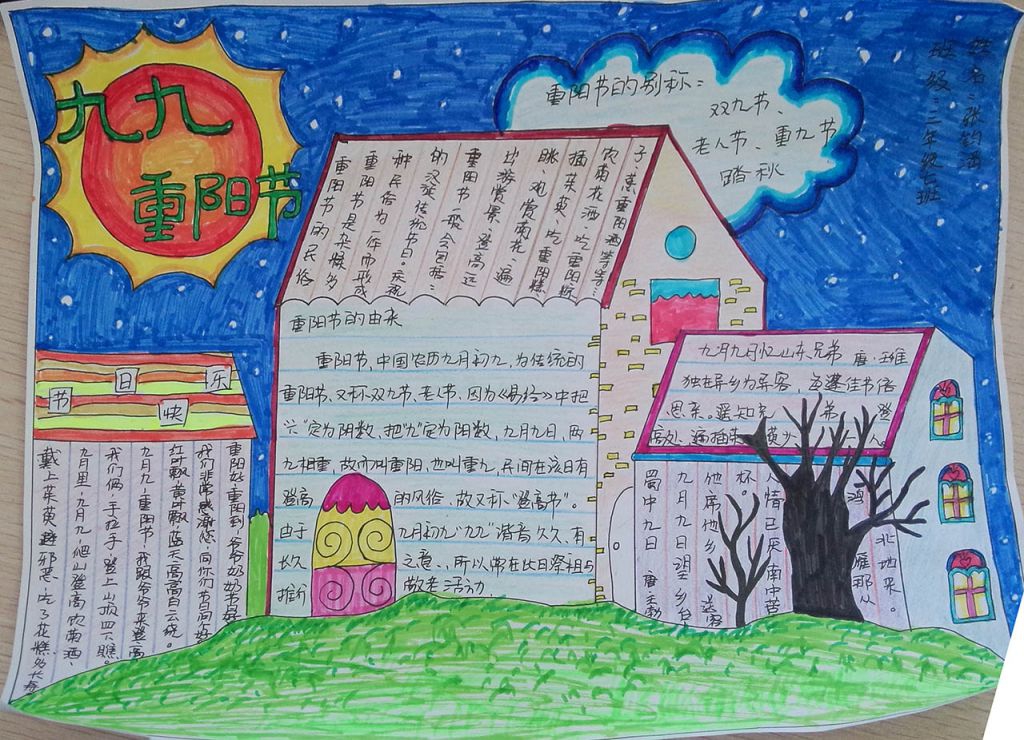 九九
重阳节
重阳节的别称：
双九节、
老人节、重九节
踏秋
班级：三年级七班
重阳节的民俗
重阳节是杂糅多
种民俗为一体而形成
的汉族传统节日。庆祝
重阳节一般会包括：
出游赏景、登高远
眺、观赏菊花、遍
插茱萸、吃重阳糕
饮菊花酒、吃重阳
子、蒸重阳酒等等…
重阳节的由来
重阳节，中国农历九月初九，为传统的
重阳节、又称双九节、老人节、因为《易经》中把
"六"定为阴数，把"九"定为阳数，九月九日，两
九相重，故而叫重阳，也叫重九，民间在该日有
登高的风俗，故又称"登高节"。
由于九月初九"九九"谐音久久，有
长久之意、，所以常在此日祭祖与
推行敬老活动，
节日快乐
重阳好，重阳到，爷爷奶奶节日好
我们非常感谢您，同你们节日问个好
红叶飘，黄叶飘，蓝天高高白云绕。
九月九，重阳节，我跟爷爷来登高
我们俩，手拉手，登上山坡四下瞧。
九月里，九月九，爬山登高饮菊酒，
戴上茱萸避邪恶，吃了花糕多长寿
九月九日忆山东兄弟 唐·王维
独在异乡为异客，每逢佳节倍
思亲。遥知兄弟登
高处，遍插茱萸少一人。
蜀中九日 唐 王勃
九月九日望乡台
他席他乡送客
杯。
人情已厌南中苦
鸿雁那从
北地来。